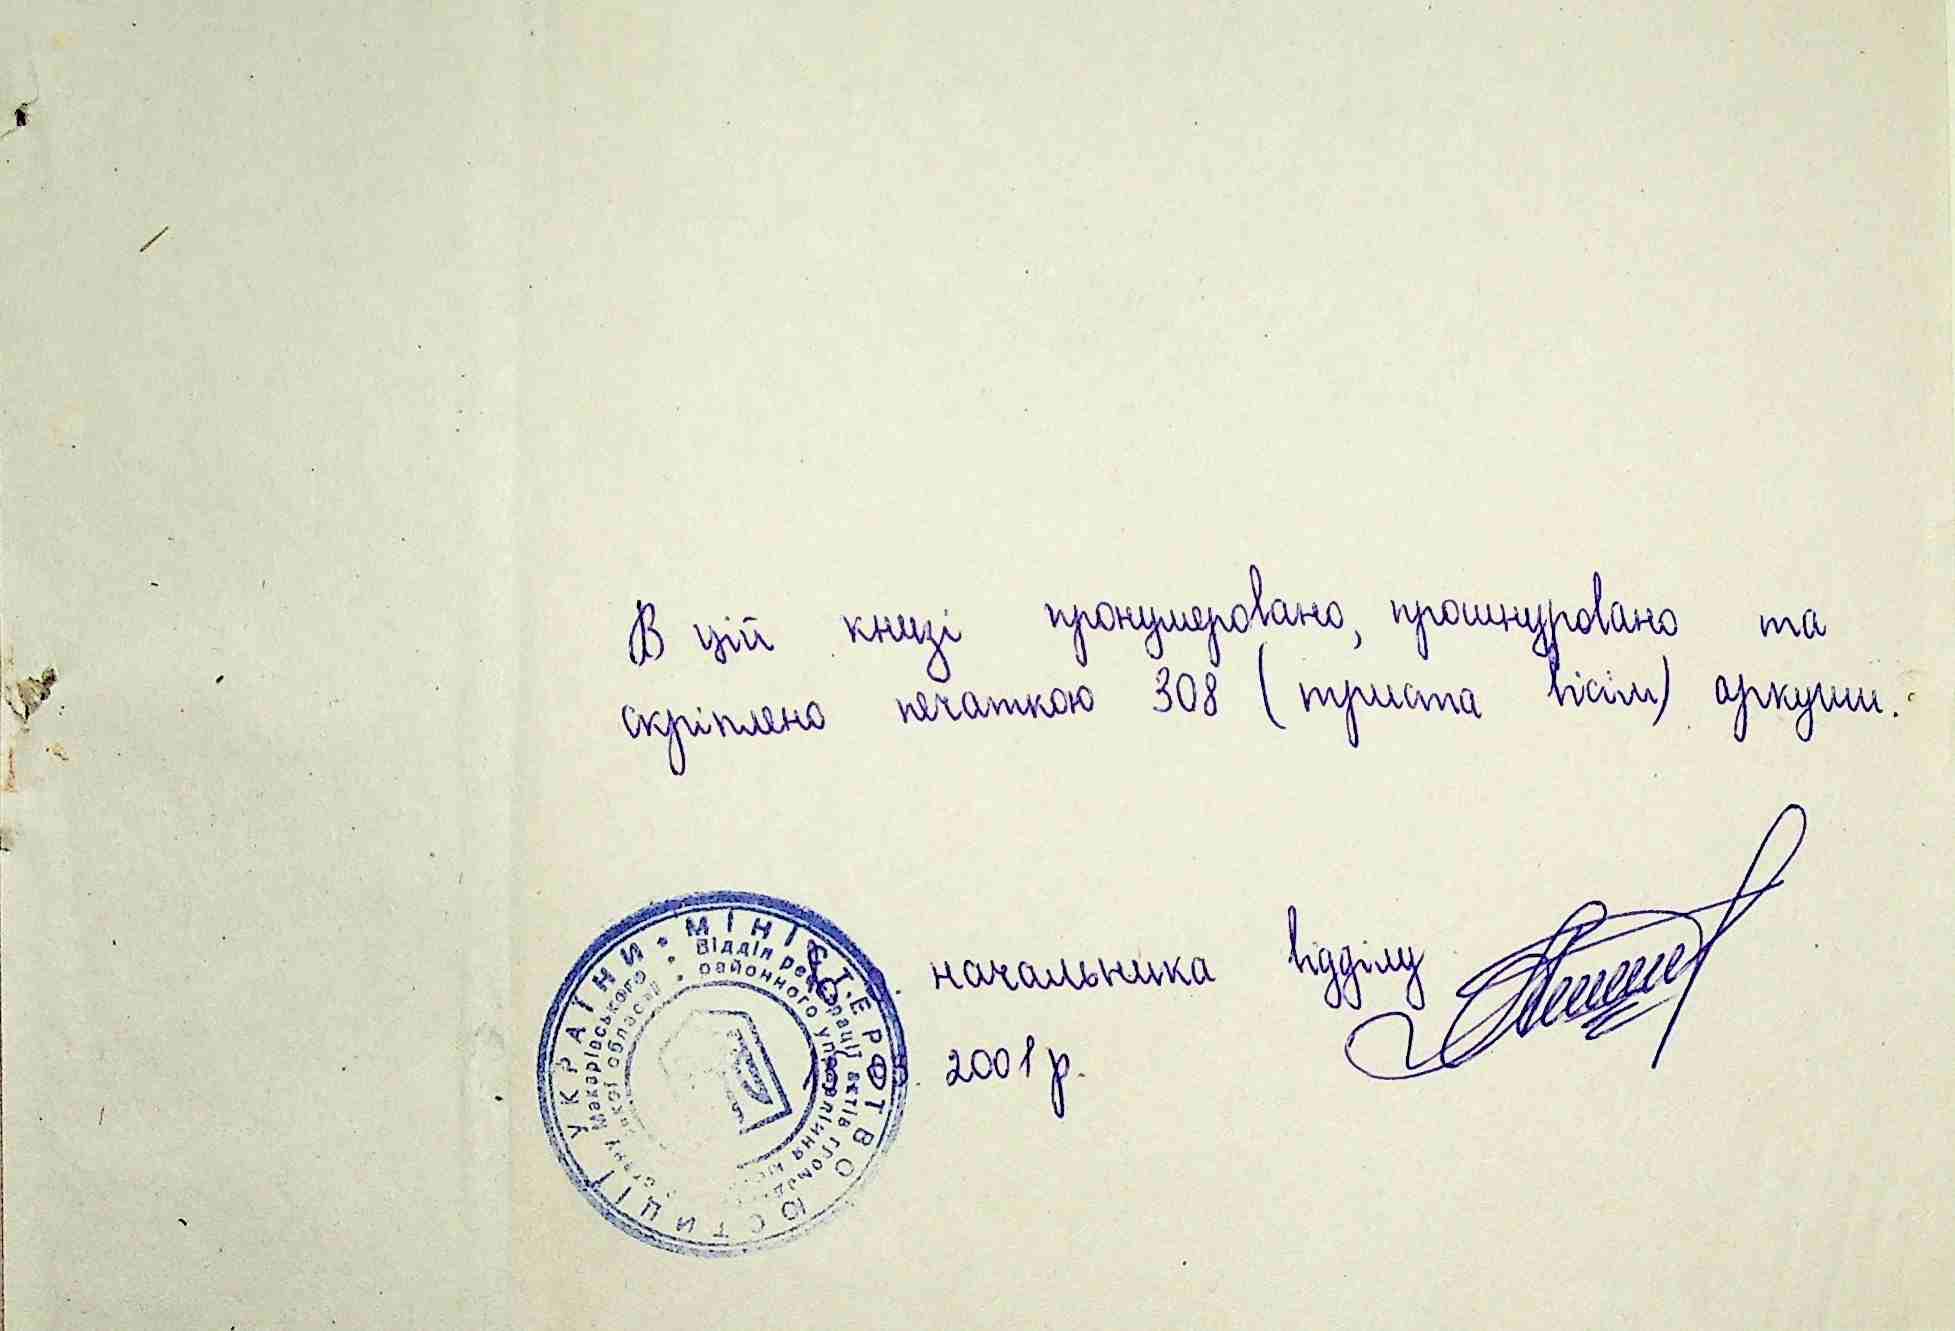 В цій книзі пронумеровано, прошнуровано та
скріплено печаткою 308 (триста вісім) аркуши.
начальника відділу
2001 р.
МІНІСТЕРСТВО ЮСТИЦІЇ УКРАЇНИ
Відділ реєстрації актів громад. стану Макарівського
районного управління області